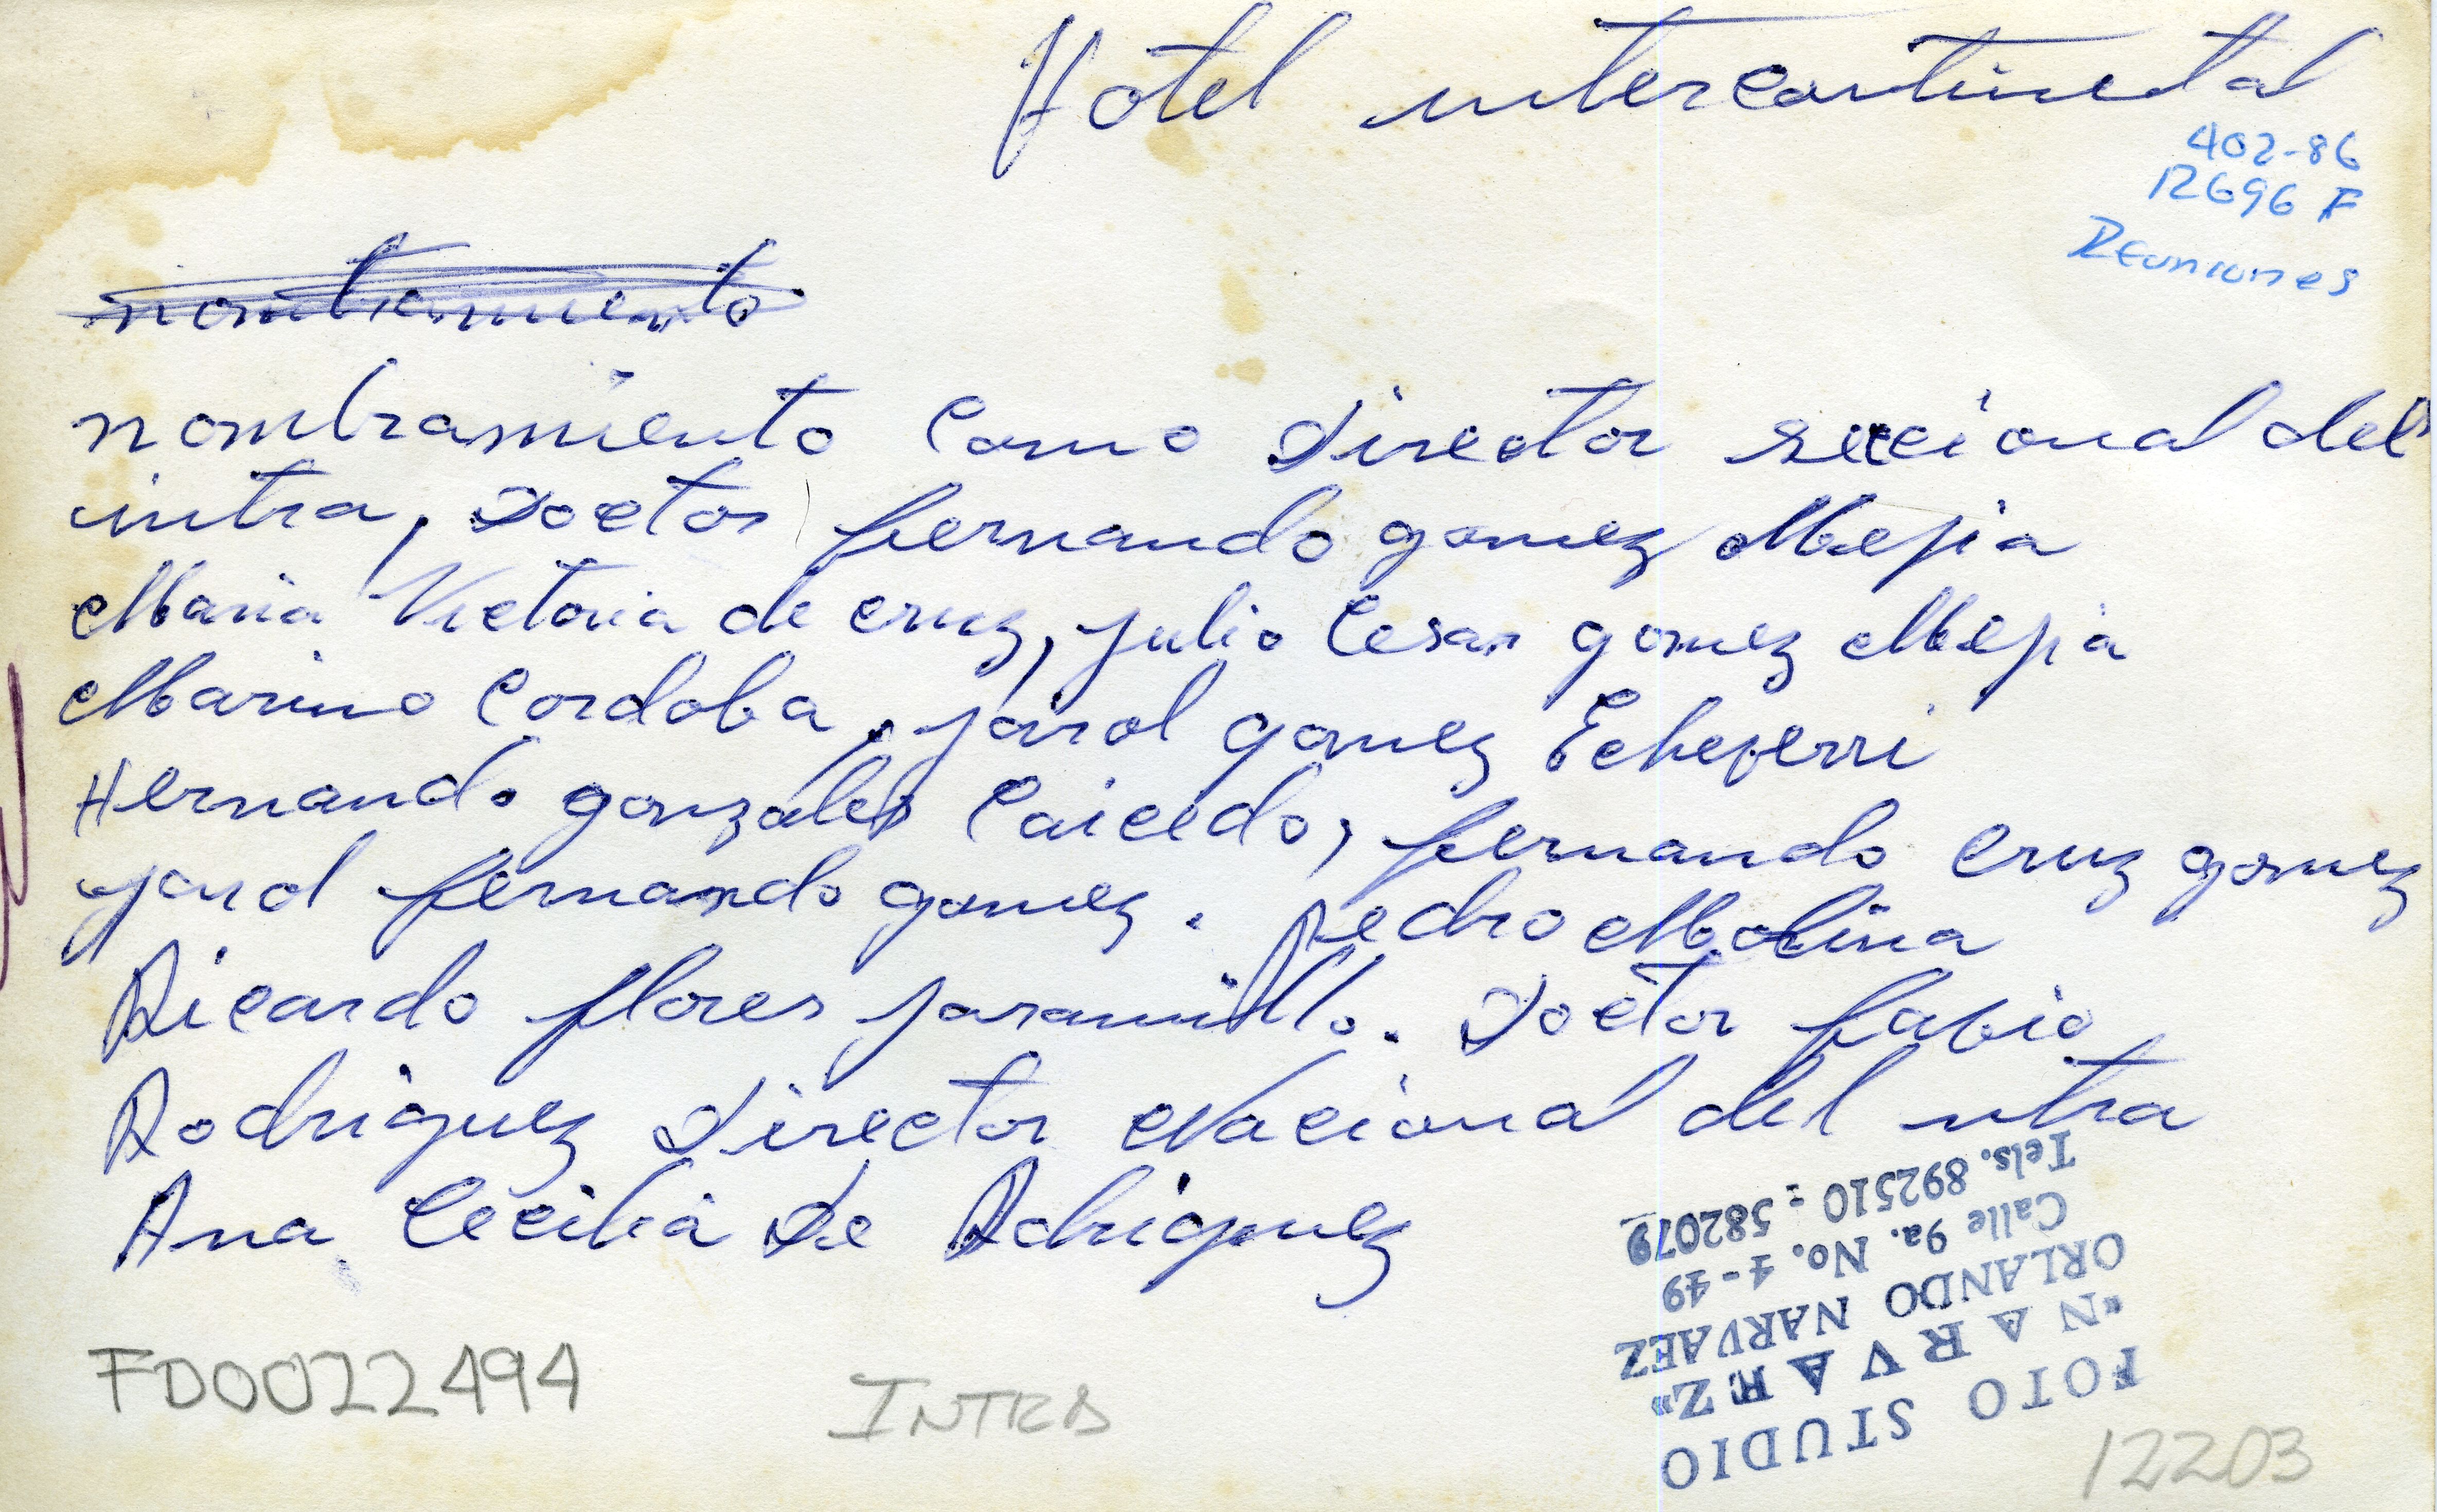 Hotel intercontinetal
402-86
12696 F
Reuniones
nombramiento
nombramiento Como Director seccional del
intra, Doctor fernando gomez Mejia
Maria Victoria de cruz, julio Cesar gomez Mejia
Marino Cordoba, jairol gomez Echeverri
Hernando gonzales Caicedo, fernando cruz gomez
fernando gomez. Pedro Molina
Ricardo flores jaramillo. Doctor fabio
Rodriguez Director Nacional del ntra
Ana Cecilia De Rdriguez
FOTO STUDIO
"NARVAEZ"
ORLANDO NARVAEZ
Calle 9a. No. 4-49
Tels. 892510 - 582079
FD0022494
INTRA
12203